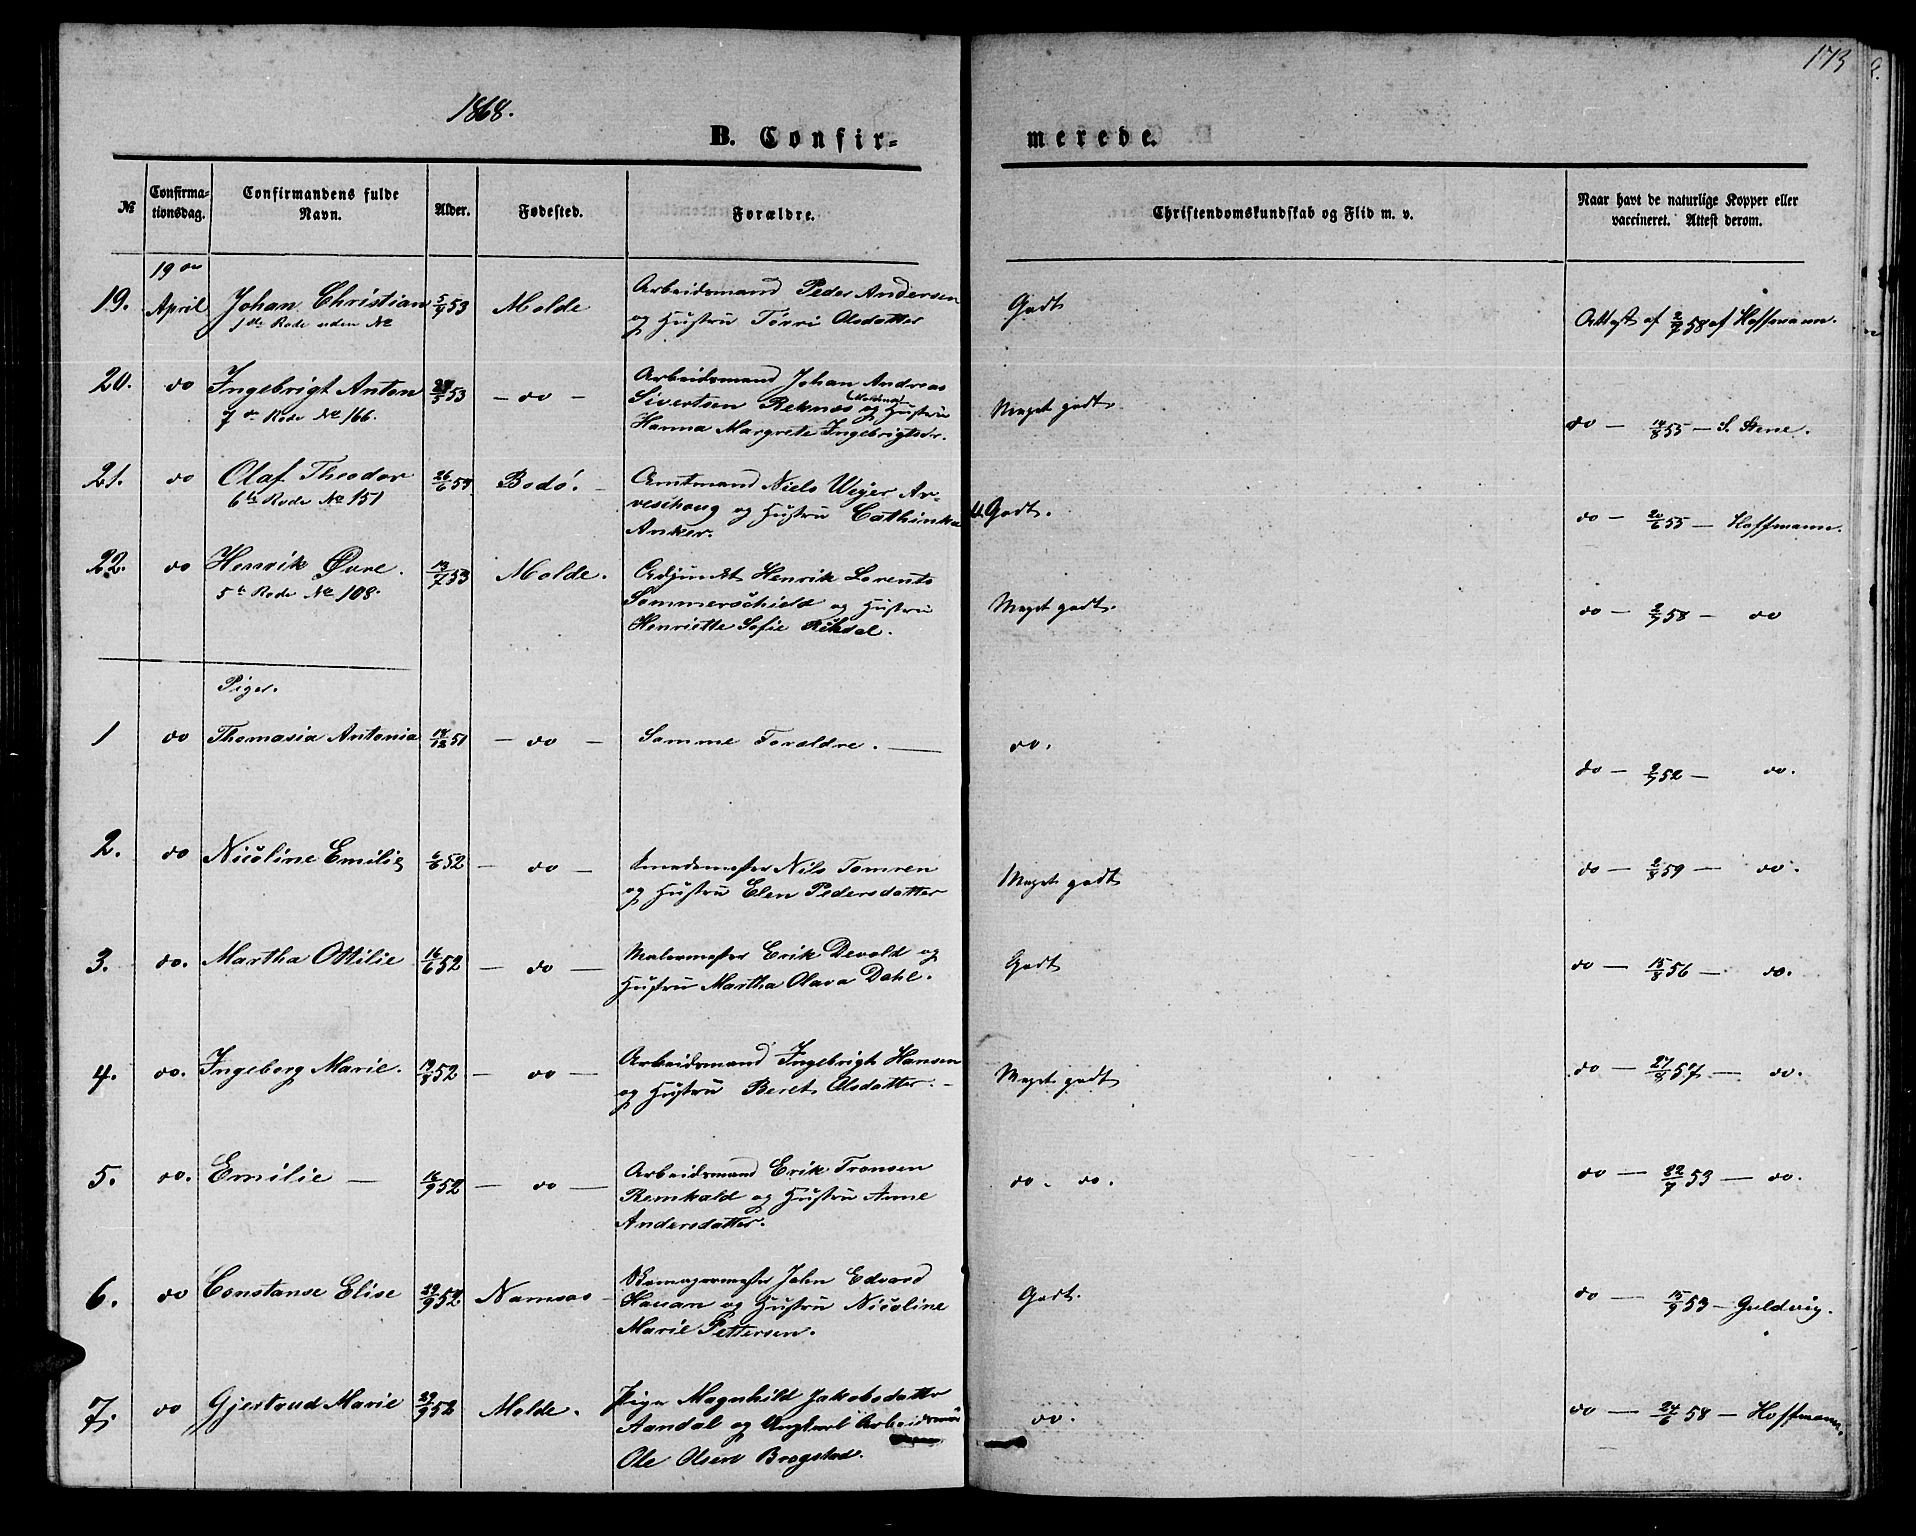 173
1868.
B. Confir-
merede.
№
Confirma-
tionsdag.
Confirmandens fulde
Navn.
Alder.
Fødested.
Forældre.
Christendomskundskab og Flid m. v.
Naar havt de naturlige Kopper eller
vaccineret. Attest derom.
19de
19. April Johan Christian 5/9 53 Molde Arbeidsmand Peder Andersen Godt Attest af 2/7 58 af Hoffmann.
1ste Rode uden № og Hustru Tørri Olsdatter
20. do Ingebrigt Anton 53 - do - Arbeidsmand Johan Andreas Meget godt. do - 14/8 55 - S. Stene.
7de Rode № 166. Sivertsen Reknæs og Hustru
Hanna Margrete Ingebrigtsdr.
21. do Olaf Theodor 26/6 53 Bodö. Amtmand Niels Weyer Ar- M. Godt. do - 20/6 55 - Hoffmann.
6te Rode № 151 vesihoug og Hustru Cathinka
Anker.
22. do Henrik Øvre. 13/7 53 Molde. Adjunkt Henrik Lorents Meget godt. do - 2/7 58 - do
5te Rode № 108. Sommerschield og Hustru
Henriette Sofie
Piger.
1 do Thomasia Antonia 14/12 51 - do - Samme Forældre. do. do - 2/7 52 - do.
2. do Nicoline Emilie 6/6 52 - do - Smedemester Nils Tomren Meget godt do - 2/8 59 - do.
og Hustru Elen Pedersdatter
3. do. Martha Ottilie 16/6 52 - do - Malermester Erik Devold og Godt do - 15/8 56 - do.
Hustru Martha Olava Dahl.
4. do. Ingeborg Marie. 19/8 52 - do - Arbeidsmand Ingebrigt Hansen Meget godt do - 27/8 57 - do.
og Hustru Beret Olsdatter. -
5. do. Emilie - 16/9 52 - do - Arbeidsmand Erik Tronsen do. do. do - 22/7 53 - do.
Remkald og Hustru Anne
Andersdatter.
6. do Constanse Elise 29/9 52 Namsos - Skomagermester John Edvard Godt. do - 15/9 53 - Guldvig.
Hauan og Hustru Nicoline
Marie Pettersen.
7. do Gjertrud Marie 29/9 52 Molde. Pige Magnhild Jakobsdatter do. do - 24/6 58 - Hoffmann.
Aandal og Ungkarl Arbeidsmd
Ole Olsen Brogstad.